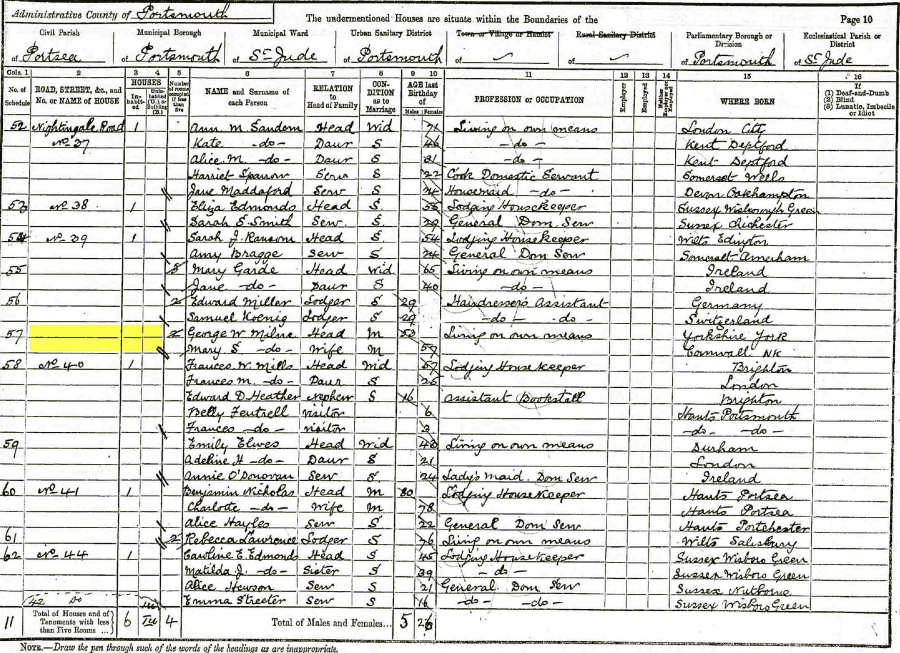 Administrative County of Portsmouth
The undermentioned Houses are situate within the Boundaries of the
Page 10
Civil Parish
of Portsea
Municipal Borough
of Portsmouth
Municipal Ward
of St Jude
Urban Sanitary District
of Portsmouth
Town or Village or Hamlet
of
Rural Sanitary District
of
Parliamentary Borough or Division
of Portsmouth
Ecclesiastical Parish or District
of St Jude
Cols. 1 2 3 4 5 6 7 8 9 10 11 12 13 14 15 16
No. of Schedule
ROAD, STREET, &c., and No. or NAME of HOUSE
HOUSES
Inhabited
Uninhabited (U.) or Building (B.)
Number of rooms occupied if less than five
NAME and Surname of each Person
RELATION to Head of Family
CONDITION as to Marriage
AGE last Birthday of
Males Females
PROFESSION or OCCUPATION
Employer
Employed
Neither Employer nor Employed
WHERE BORN
If
(1) Deaf-and-Dumb
(2) Blind
(3) Lunatic, Imbecile or Idiot
52 Nightingale Road 1 Ann M. Sandem Head Wid 71 Living on own means London City
No 37 Kate -do- Daur S 46 -do- Kent Deptford
Alice M. -do- Daur S 31 -do- Kent Deptford
Harriet Sparow Serv S 22 Cook Domestic Servant Somerset Wells
Jane Maddaford Serv S 24 Housemaid -do- Devon Oakhampton
53 No 38 1 Eliza Edmonds Head S 53 Lodging Housekeeper Sussex Wisborough Green
Sarah S. Smith Serv S 29 General Dom Serv Sussex Chichester
54 No 39 1 Sarah J. Ransom Head S 54 Lodging Housekeeper Wilts Edington
Amy Bragge Serv S 24 General Dom Serv Somerset
55 5 Mary Garde Head Wid 65 Living on own means Ireland
Jane -do- Daur S 40 -do- Ireland
56 2 Edward Miller Lodger S 29 Hairdressers Assistant Germany
Samuel Koenig Lodger S 29 -do- do- Switzerland
57 2 George W. Milne Head M 53 Living on own means Yorkshire York
Mary S -do- Wife M 57 Cornwall NK
58 No 40 1 Frances W. Mills Head Wid 57 Lodging House Keeper Brighton
Frances M. -do- Daur S 25 London
Edward D. Heather Nephew S 16 Assistant Bookstall Brighton
Belly Fentrell visitor 6 Hants Portsmouth
Frances -do- visitor 3 -do- -do-
59 Emily Elwes Head Wid 40 Living on own means Durham
Adeline H -do- Daur S 21 London
Annie O'Donovan Serv S 24 Lady's maid. Dom Serv Ireland
60 No 41 1 Benjamin Nicholas Head M 80 Lodging House Keeper Hants Portsea
Charlotte -do- Wife M 78 Hants Portsea
Alice Hayles Serv S 22 General Dom Serv Hants Portchester
61 2 Rebecca Lawrence Lodger S 76 Living on own means Wilts Salisbury
62 No 44 1 Caroline E. Edmonds Head S 45 Lodging Housekeeper Sussex Wisboro Green
Matilda J. -do- Sister S 39 -do- Sussex Wisboro Green
Alice Hewson Serv S 21 General Dom Serv Sussex Nutborne
Emma Streeter Serv S 16 -do- -do- Sussex Wisboro Green
11 Total of Houses and of Tenements with less than Five Rooms ... 6 4 Total of Males and Females... 5 26
NOTE.—Draw the pen through such of the words of the headings as are inappropriate.